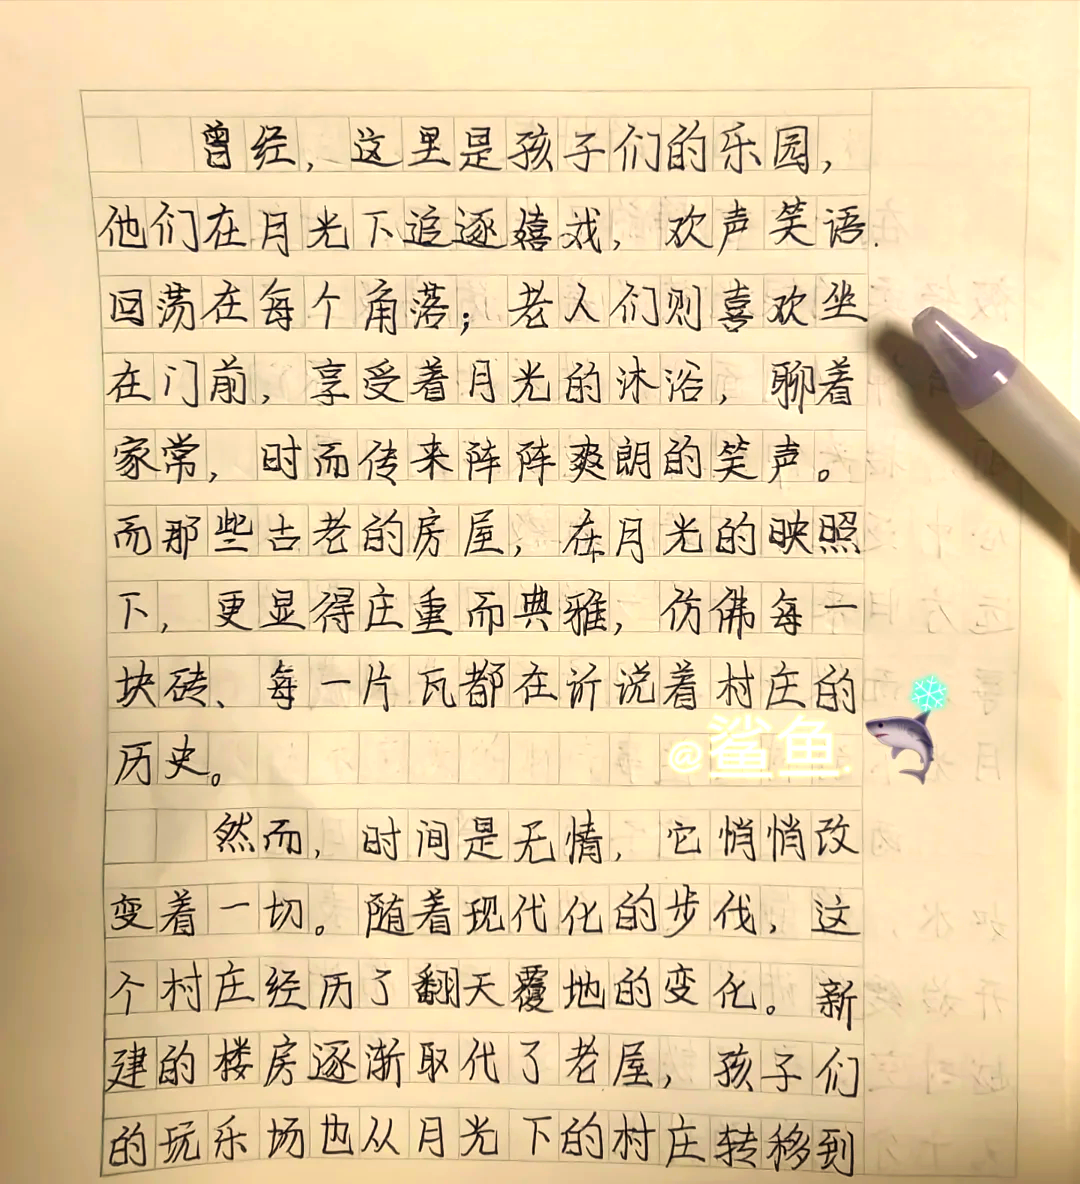 曾经，这里是孩子们的乐园，
他们在月光下追逐嬉戏，欢声笑语
回荡在每个角落；老人们则喜欢坐
在门前，享受着月光的沐浴，聊着
家常，时而传来阵阵爽朗的笑声。
而那些古老的房屋，在月光的映照
下，更显得庄重而典雅，仿佛每一
块砖、每一片瓦都在诉说着村庄的
历史。
@鲨鱼.
然而，时间是无情，它悄悄改
变着一切。随着现代化的步伐，这
个村庄经历了翻天覆地的变化。新
建的楼房逐渐取代了老屋，孩子们
的玩乐场也从月光下的村庄转移到